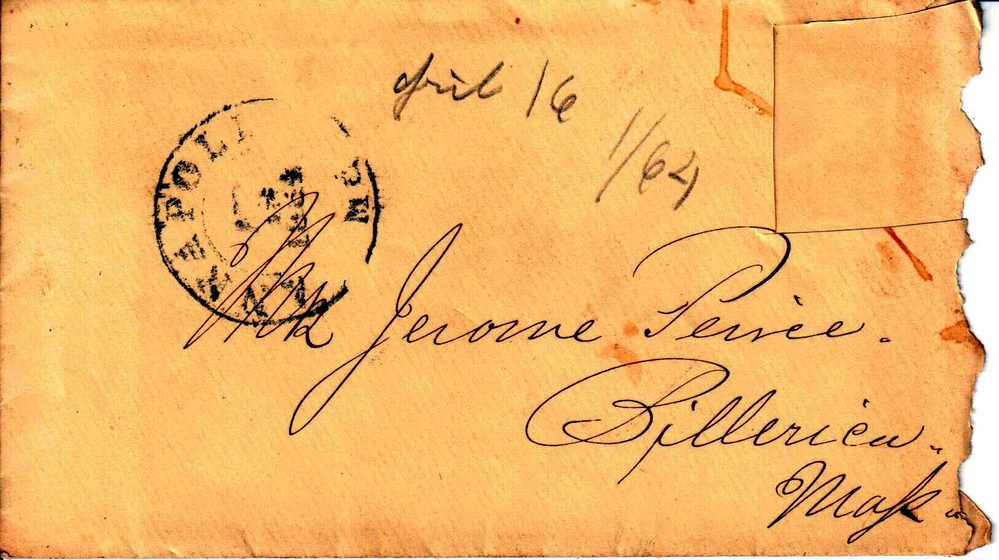 April 16
1/64
NAPOLI MD
Mrs Jerome Peirce.
Billerica.
Mass